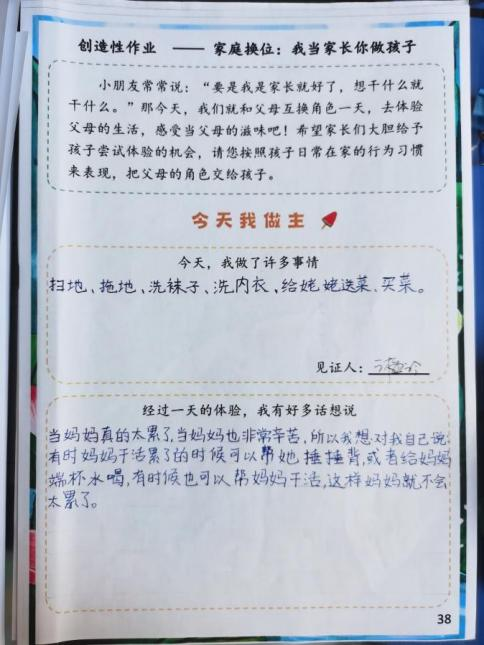 创造性作业 —— 家庭换位：我当家长你做孩子
小朋友常常说：“要是我是家长就好了，想干什么就
干什么。”那今天，我们就和父母互换角色一天，去体验
父母的生活，感受当父母的滋味吧！希望家长们大胆给予
孩子尝试体验的机会，请您按照孩子日常在家的行为习惯
来表现，把父母的角色交给孩子。
今天我做主
今天，我做了许多事情
扫地、拖地、洗袜子、洗内衣、给姥姥送菜、买菜。
见证人：
经过一天的体验，我有好多话想说
当妈妈真的太累了，当妈妈也非常辛苦，所以我想对我自己说：
有时妈妈干活累了的时候可以帮她捶捶背，或者给妈妈
端杯水喝，有时候也可以帮妈妈干活，这样妈妈就不会
太累了。
38